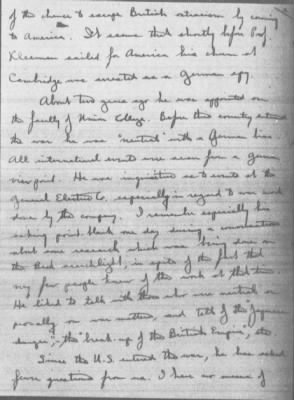 of the chance to escape British ostracism by coming
to America. It seems that shortly before Prof.
Kleeman sailed for America his chum at
Cambridge was arrested as a German spy.
About two years ago he was appointed on
the faculty of Union College. Before this country entered
the war he was "neutral" with a German bias.
All international events were seen from a German
viewpoint. He was inquisitive as to events at the
General Electric Co, especially in regard to war work
done by the company. I remember especially his
asking point blank one day during a conversation
about some research which was being done on
the Beck searchlight, in spite of the fact that
very few people knew of the work at that time.
He liked to talk with those who were neutral or
on war matters, and talk of the "Japanese
danger", the "break-up of the British Empire", etc.
Since the U.S. entered the war, he has asked
fewer questions from me. I have no means of